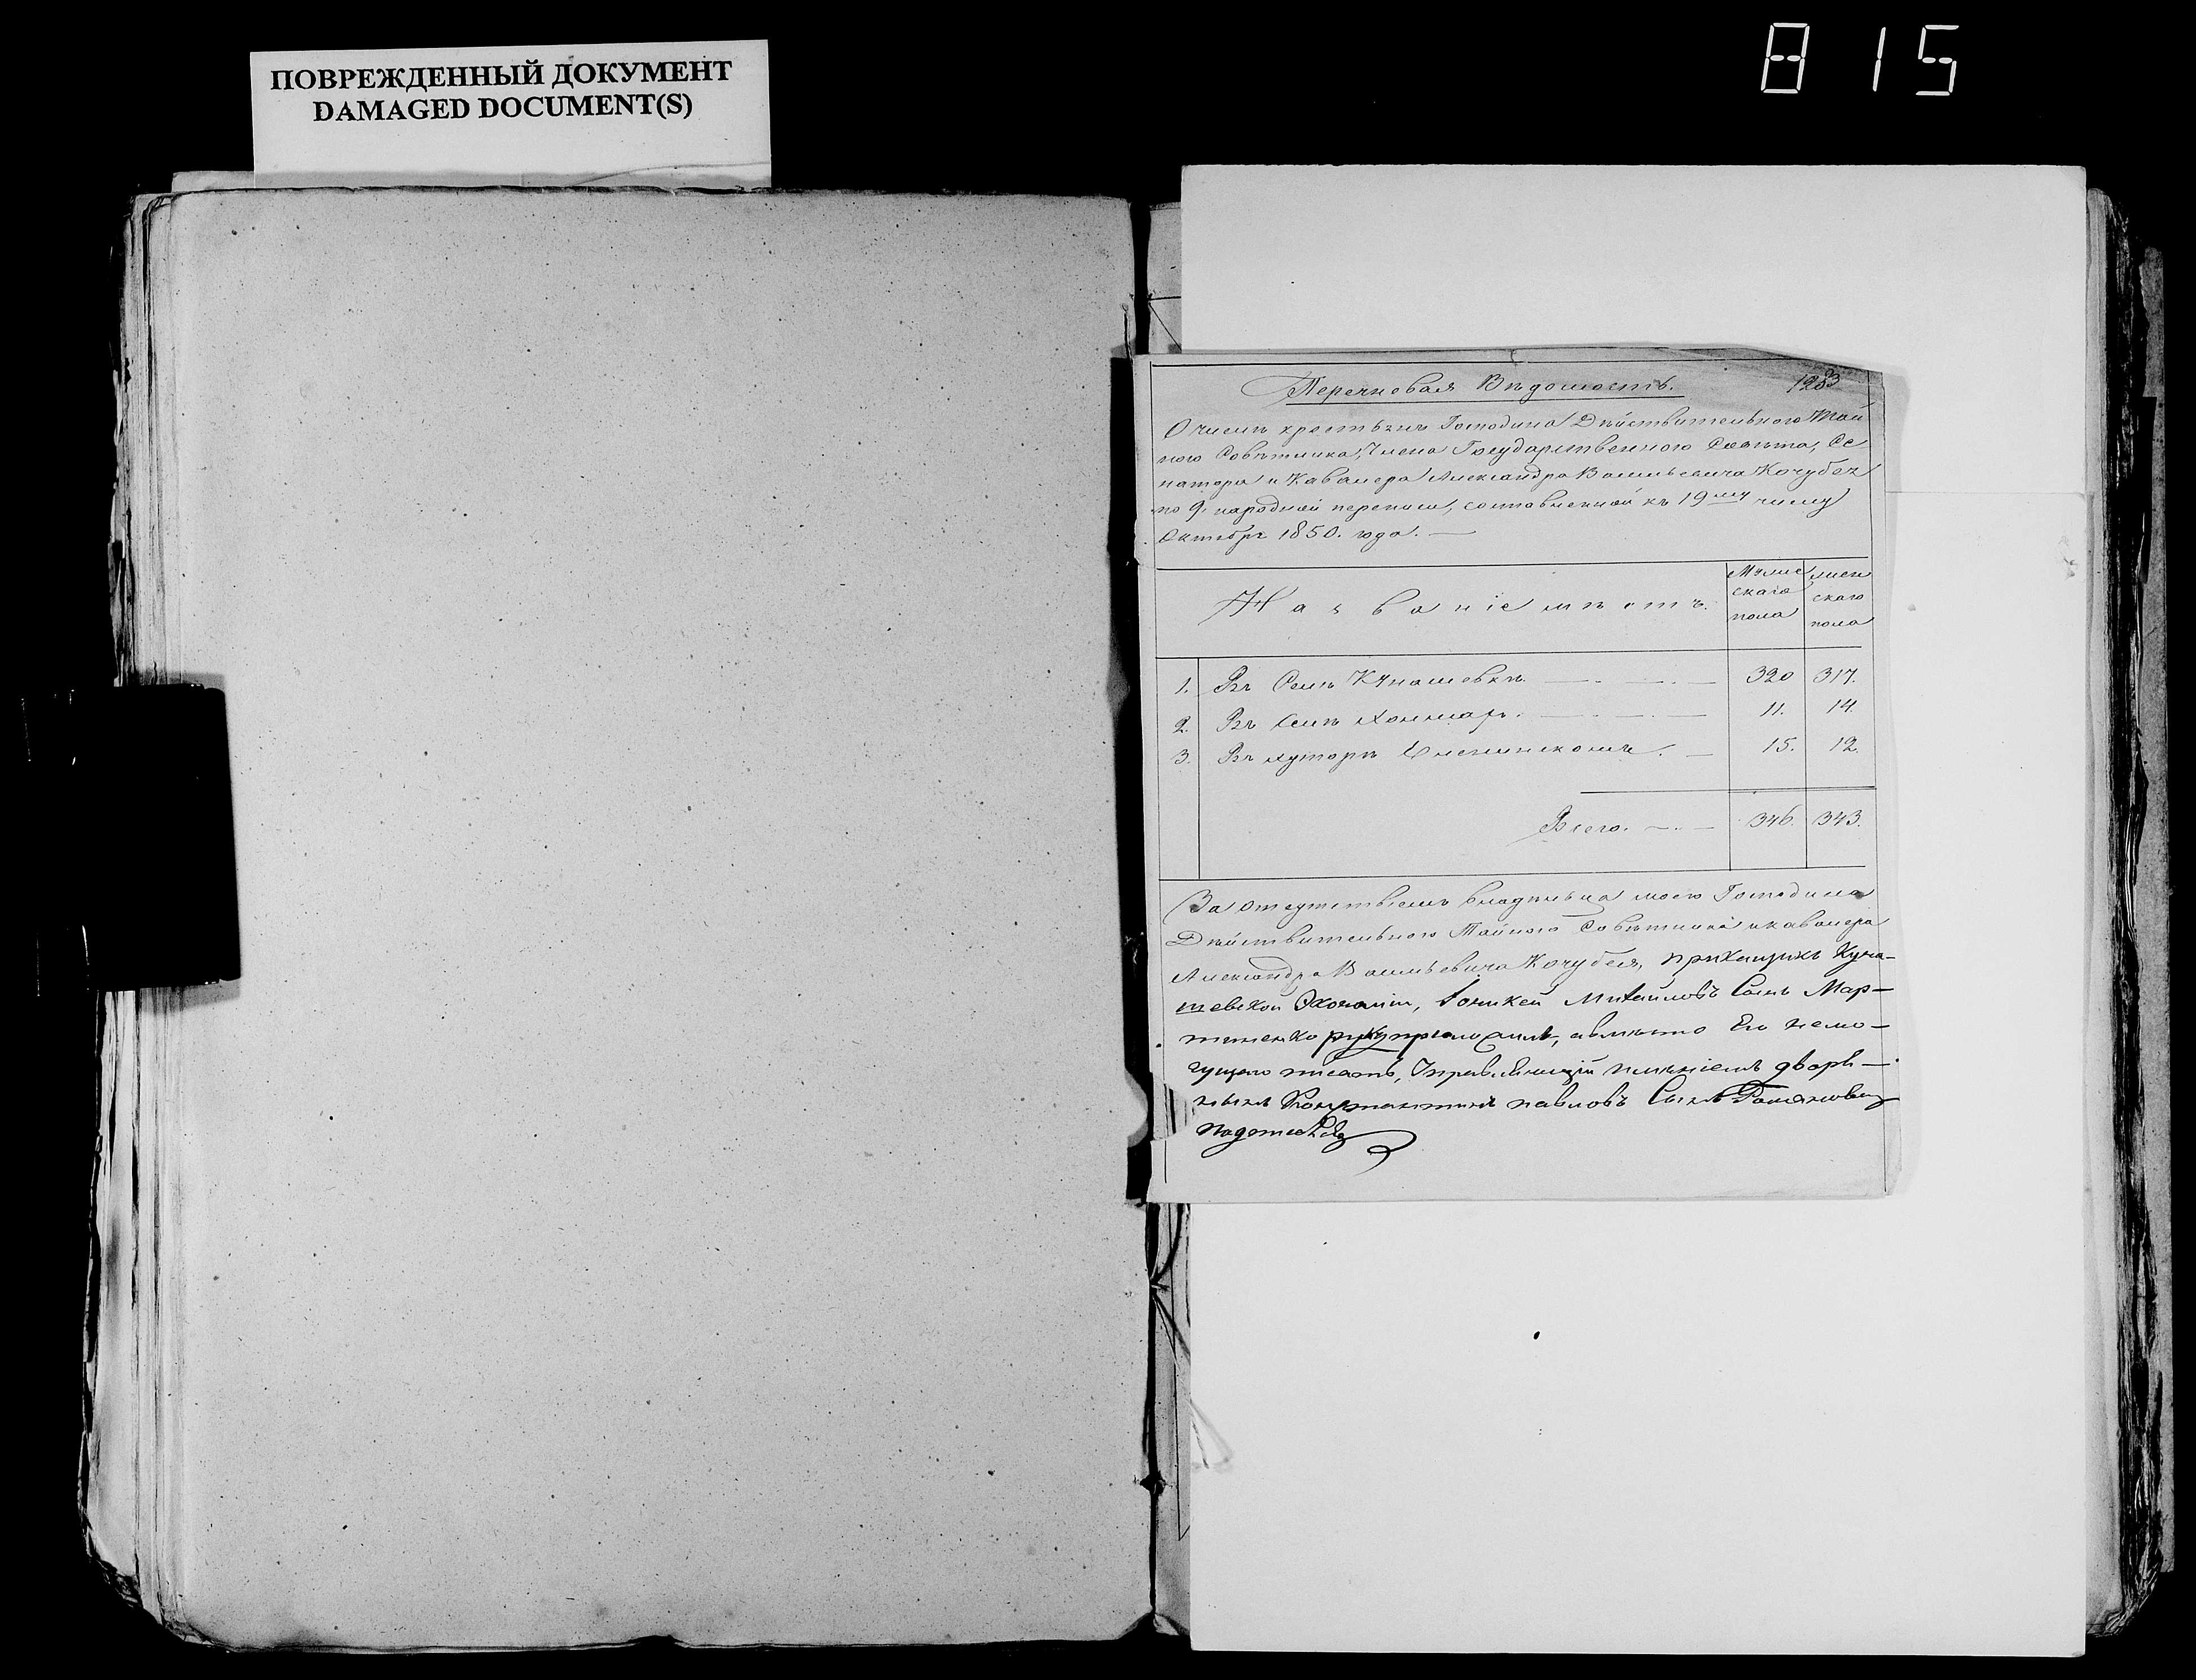 ПОВРЕЖДЕННЫЙ ДОКУМЕНТ
DAMAGED DOCUMENT(S)
815
Перечневая Вѣдомость.
1283
О числѣ крестьянъ Господина Дѣйствительнаго Тай
ного Совѣтника, Члена Государственнаго Совѣта, Се
натора и Кавалера Александра Васильевича Кочубея
по 9. народной переписи, составленной къ 19му числу
Октября 1850. года.
Названіе мѣстъ.
Мужескаго пола
женскаго пола
1. Въ Селѣ Кунашевкѣ. 320 317.
2. Въ Селѣ 11. 14.
3. Въ хуторѣ 15. 12.
Всего. 346. 343.
За отсутствіемъ владѣльца моего Господина
Дѣйствительнаго Тайного Совѣтника и кавалера
Александра Васильевича Кочубея, прикащикъ Куна-
шевской Экономіи, Михайловъ Сынъ Мар-
тиненко руку приложилъ, а вмѣсто Его немо-
гущаго писать, Управляющій имѣніемъ дворя-
нинъ Константинъ павловъ Сынъ Романовъ